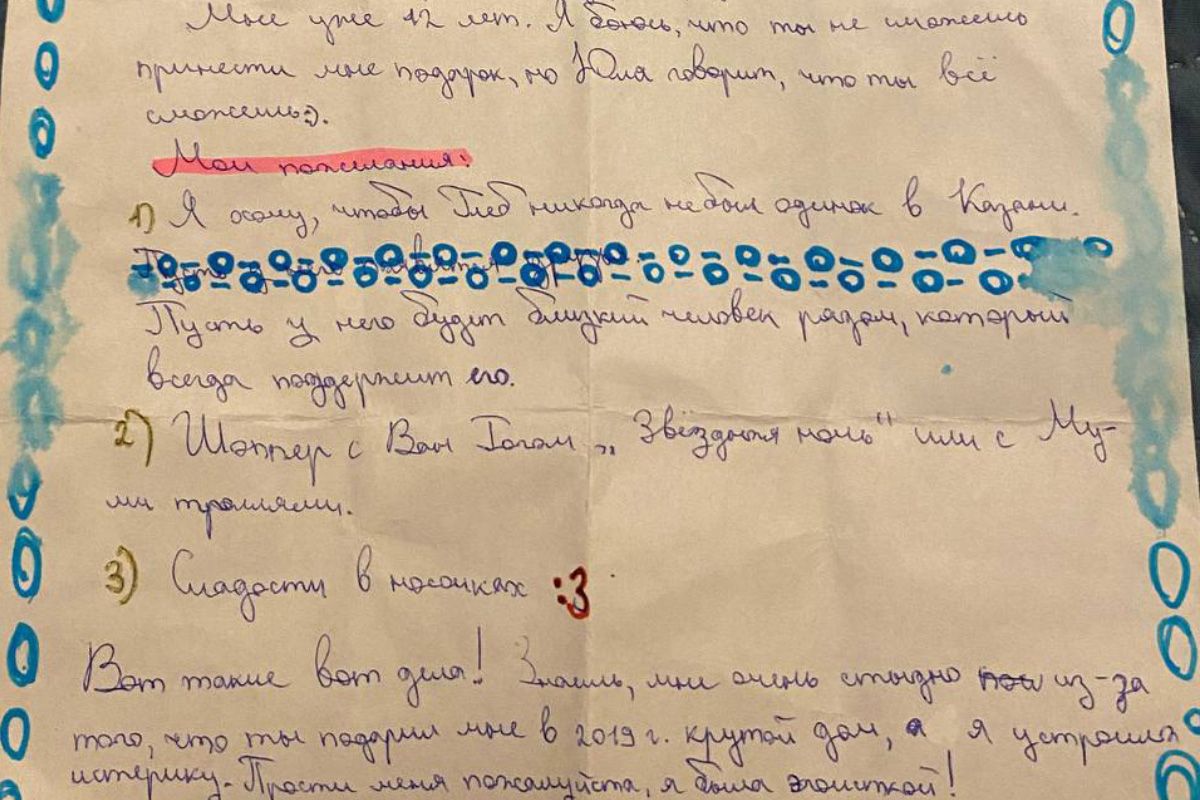 Мне уже 12 лет. Я боюсь, что ты не сможешь
принести мне подарок, но Юля говорит, что ты всё
сможешь:).
Мои пожелания:
1) Я хочу, чтобы Глеб никогда не был одинок в Казани.
Пусть у него
Пусть у него будет близкий человек рядом, который
всегда поддержит его.
2) Шоппер с Ван Гогом „Звёздная ночь" или с Му-
ми троллями.
3) Сладости в носочках :3
Вот такие вот дела! Знаешь, мне очень стыдно из-за
того, что ты подарил мне в 2019 г. крутой дом, а я устроила
истерику. Прости меня пожалуйста, я была эгоисткой!